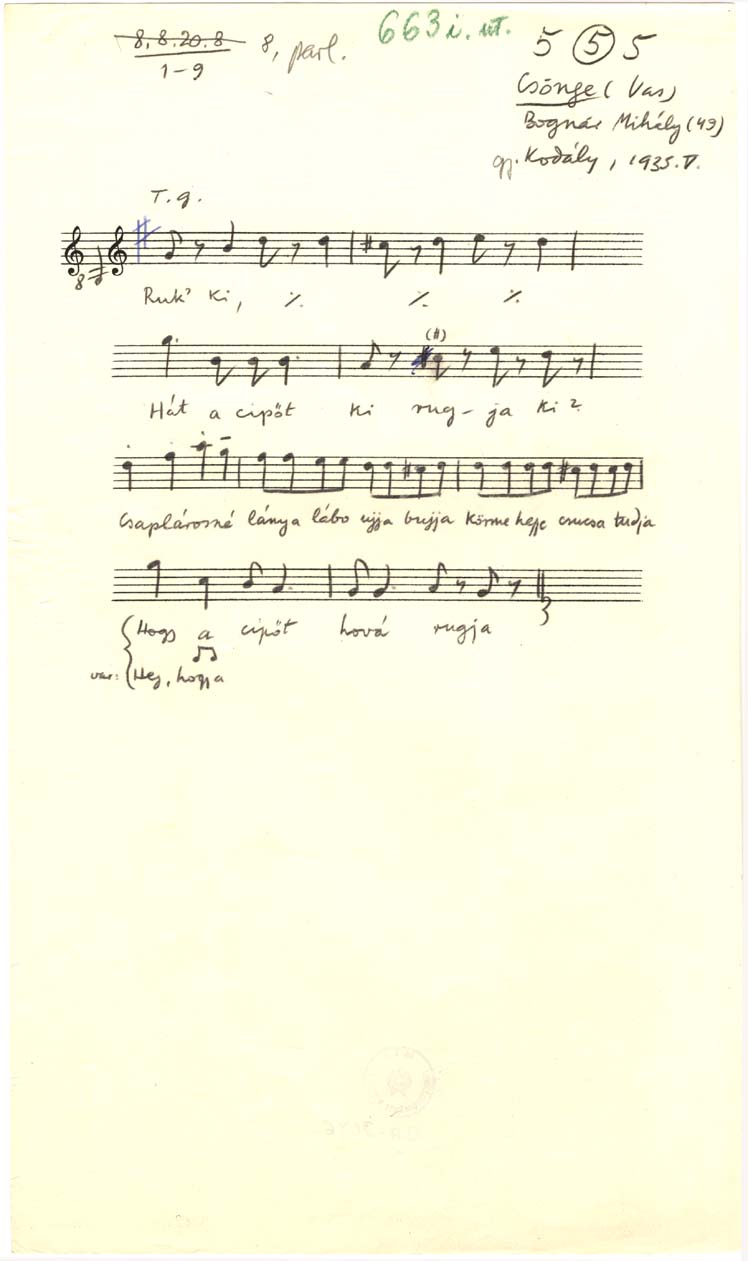 8, 8. 20. 8 8, parl. 663 i. ut. 5 5 5
1-9
Csönge (Vas)
Bognár Mihály (49)
gy. Kodály, 1935. V.
T. g.
8
Ruk' ki, ٪ ٪ ٪
(#)
Hát a cipőt ki rug-ja ki?
Csaplárosné lánya lábo ujja bujja körme hegye csucsa tudja
Hogy a cipőt hová rugja
var: Hej, hogja